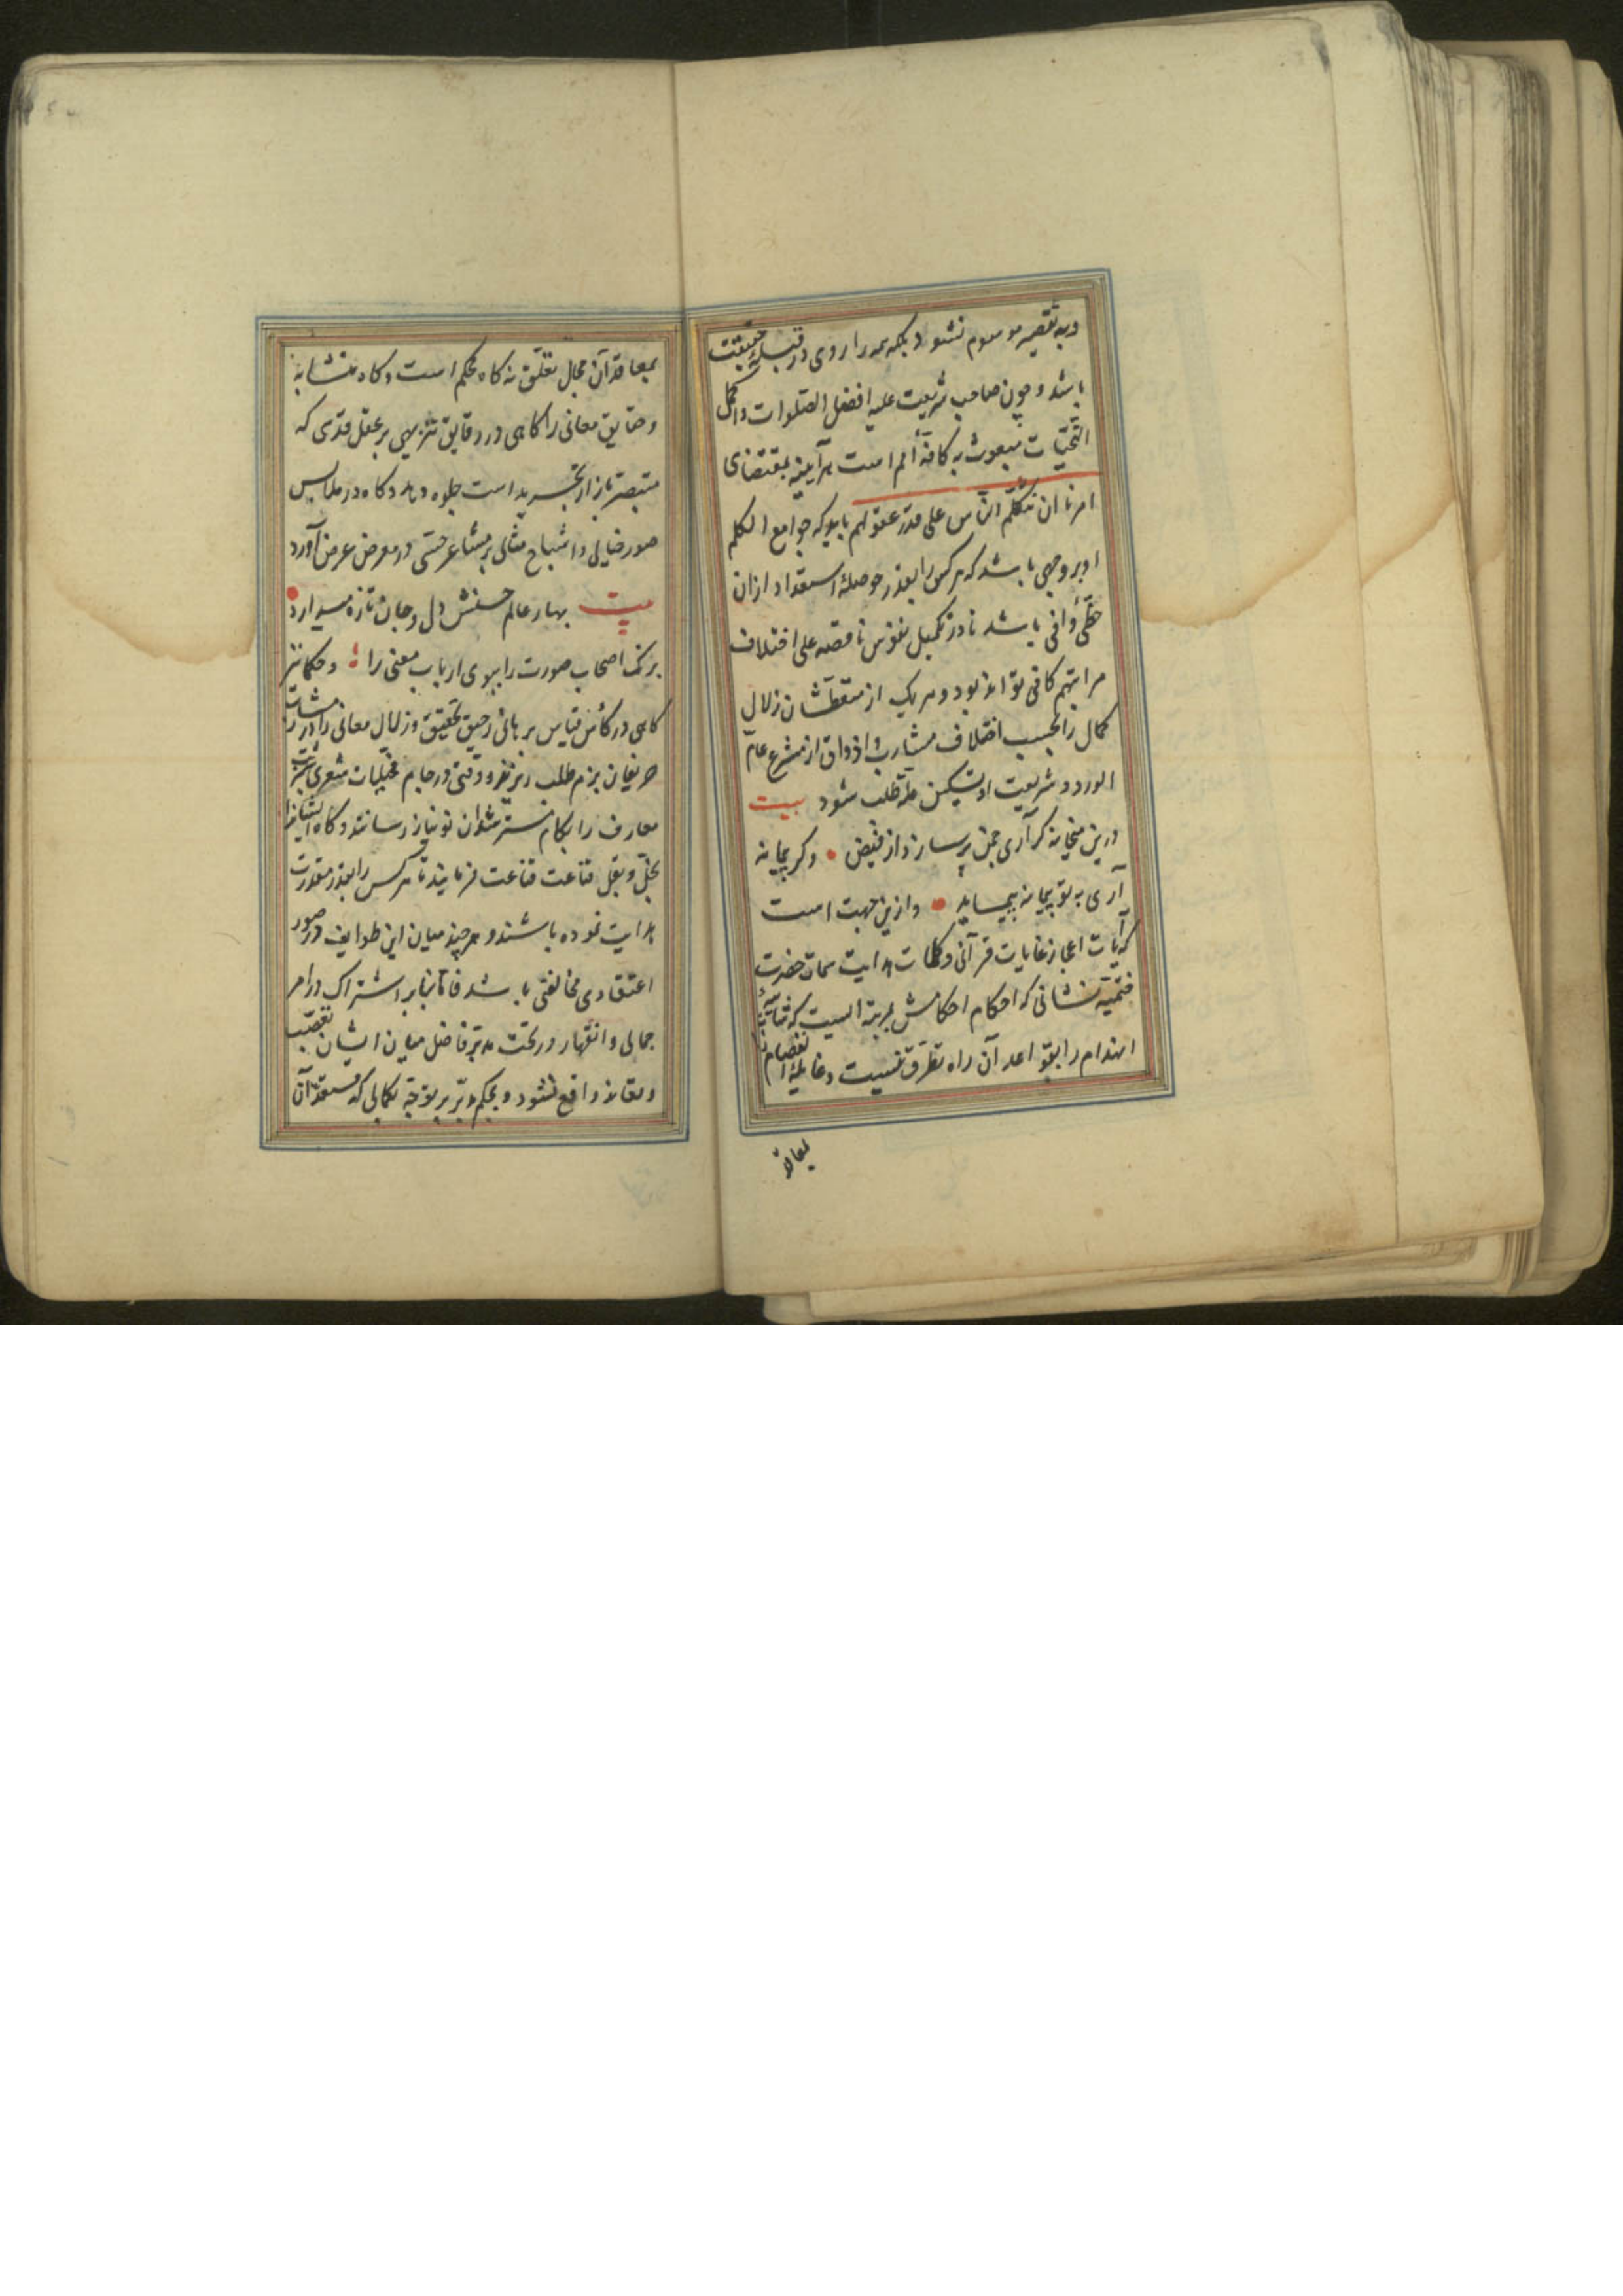 وبه تقصیر موسوم نشود بلکه همه را روی در قبلهٔ حقیقت
باشد و چون صاحب شریعت علیه افضل الصلوات واکمل
التحیّات مبعوث به کافّهٔ امم است هرآینه بمقتضای
امرنا ان نکلّم النّاس علی قدر عقولهم باید که جوامع الکلم
او بر وجهی باشد که هر کس را بقدر حوصلهٔ استعداد ازان
حظّی وافی باشد تا در تکمیل نفوس ناقصه علی اختلاف
مراتبهم کافی تواند بود و هر یک از متعطّشان زلال
کمال را بحسب اختلاف مشارب و اذواق از مشرع عامّ
الورود شریعت او تسکین طلب شود بیت
درین میخانه گر آری خمی پر سازد از فیض وگر پیمانه
آری به تو پیمانه پیماید وازین جهت است
که آیات اعجاز غایات قرآنی و کلمات هدایت سمات حضرت
ختمیّت نشانی که احکام احکامش بمرتبه ایست که شایبهٔ
انهدام را بقواعد آن راه تطرّق نیست و غایلهٔ انفصام را
بمعاقد آن مجال تعلّق نه گاه محکم است و گاه متشابه
و حقایق معانی را گاهی در دقایق تنزیهی بر عقل قدسی که
متبصر باز تجرید است جلوه دهد و گاه در ملابس
صور خیالی و اشباح مثالی بر مشاعر حسّی در معرض عرض آورد
بیت بهار عالم حسنش دل و جان تازه میدارد
برنگ اصحاب صورت را ببوی ارباب معنی را و حکما نیز
گاهی در کأس قیاس برهانی رحیق تحقیق و زلال معانی را در
حریفان بزم طلب ریزند و وقتی در جام مخیلات شعری شربت
معارف را بکام مسترشدان نو نیاز رسانند و گاه ایشانرا
بخلّ و بقل قناعت قناعت فرمایند تا هر کس را بقدر مقدرت
هدایت نموده باشند و هر چند میان این طوایف در صور
اعتقادی مخالفتی باشد فامّا بنابر اشتراک در امر
جمالی و انتهار در تحت مدبّر فاضل میان ایشان تعصّب
و تعاند واقع نشود و بحکم مدبّر بر توجّه بکمالی که مستعدّ آن
بمعاقد